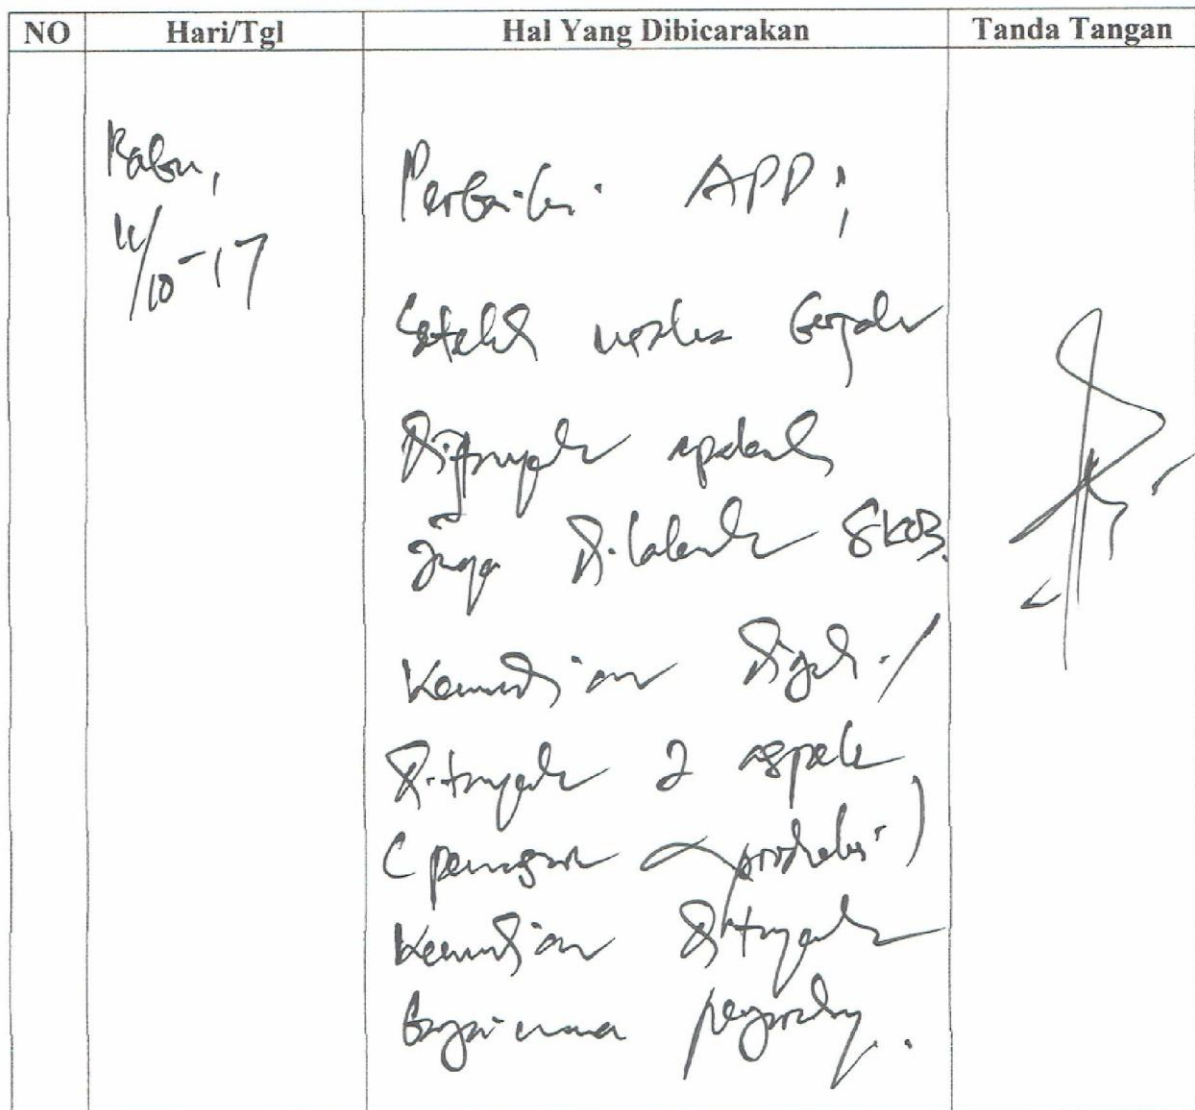 NO Hari/Tgl Hal Yang Dibicarakan Tanda Tangan
Rabu,
11/10-17
Perbaiki APD;
Setelah usaha berjalan
Ditanyakan apakah
juga dilakukan
Kemudian digali/
Ditanyakan 2 aspek
( produksi)
Kemudian Ditanyakan
Bagaimana